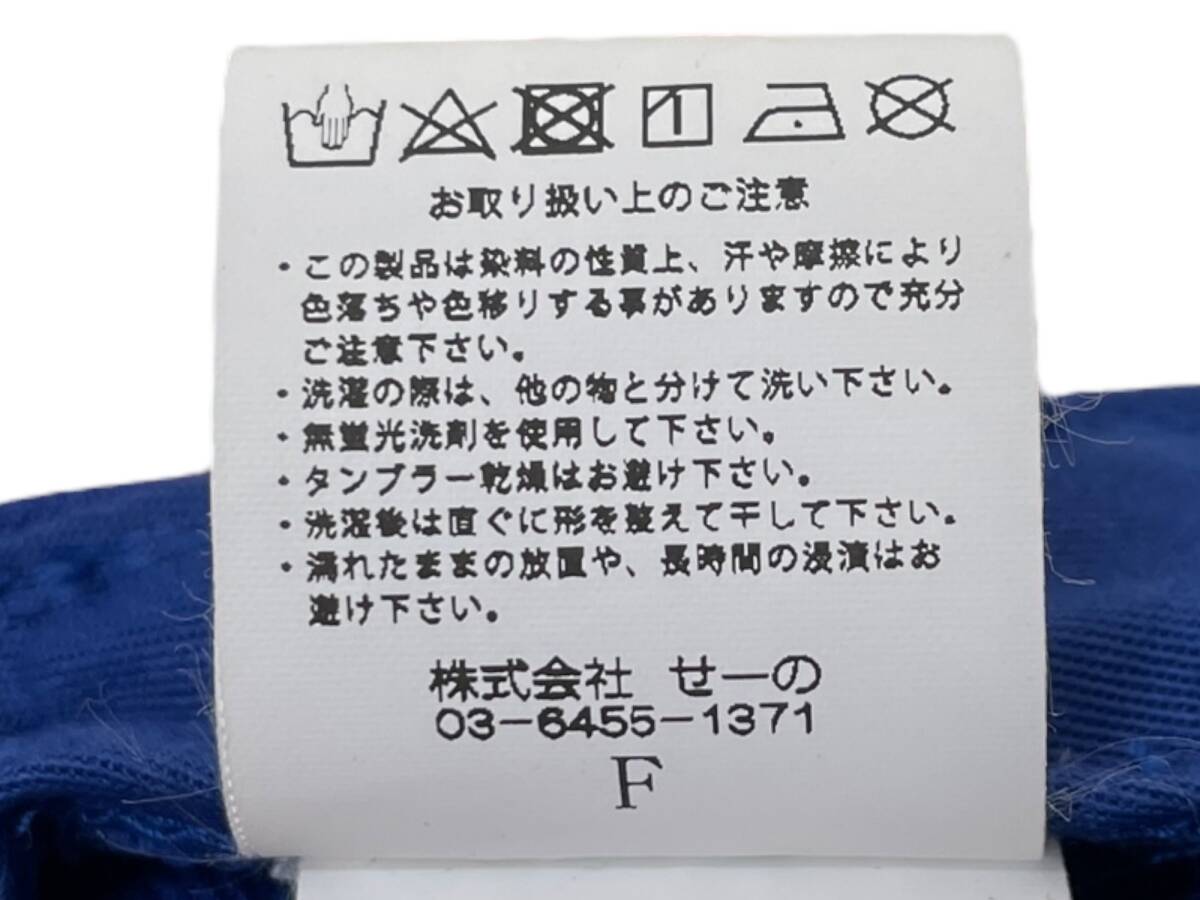 お取り扱い上のご注意
・この製品は染料の性質上、汗や摩擦により
色落ちや色移りする事がありますので充分
ご注意下さい。
・洗濯の際は、他の物と分けて洗い下さい。
・無蛍光洗剤を使用して下さい。
・タンブラー乾燥はお避け下さい。
・洗濯後は直ぐに形を整えて干して下さい。
・濡れたままの放置や、長時間の浸漬はお
避け下さい。
株式会社 せーの
03-6455-1371
F